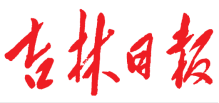 吉林日报